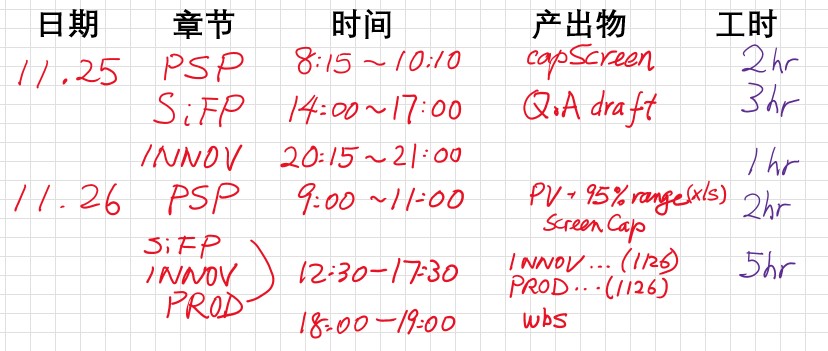 日期 章节 时间 产出物 工时
11.25 PSP 8:15~10:10 capScreen 2hr
SiFP 14:00~17:00 Q.A draft 3hr
INNOV 20:15~21:00 1hr
11.26 PSP 9:00~11:00 PV+95%range(xls) 2hr
Screen Cap
SiFP
INNOV 12:30-17:30 INNOV...(1126) 5hr
PROD PROD...(1126)
18:00-19:00 wbs